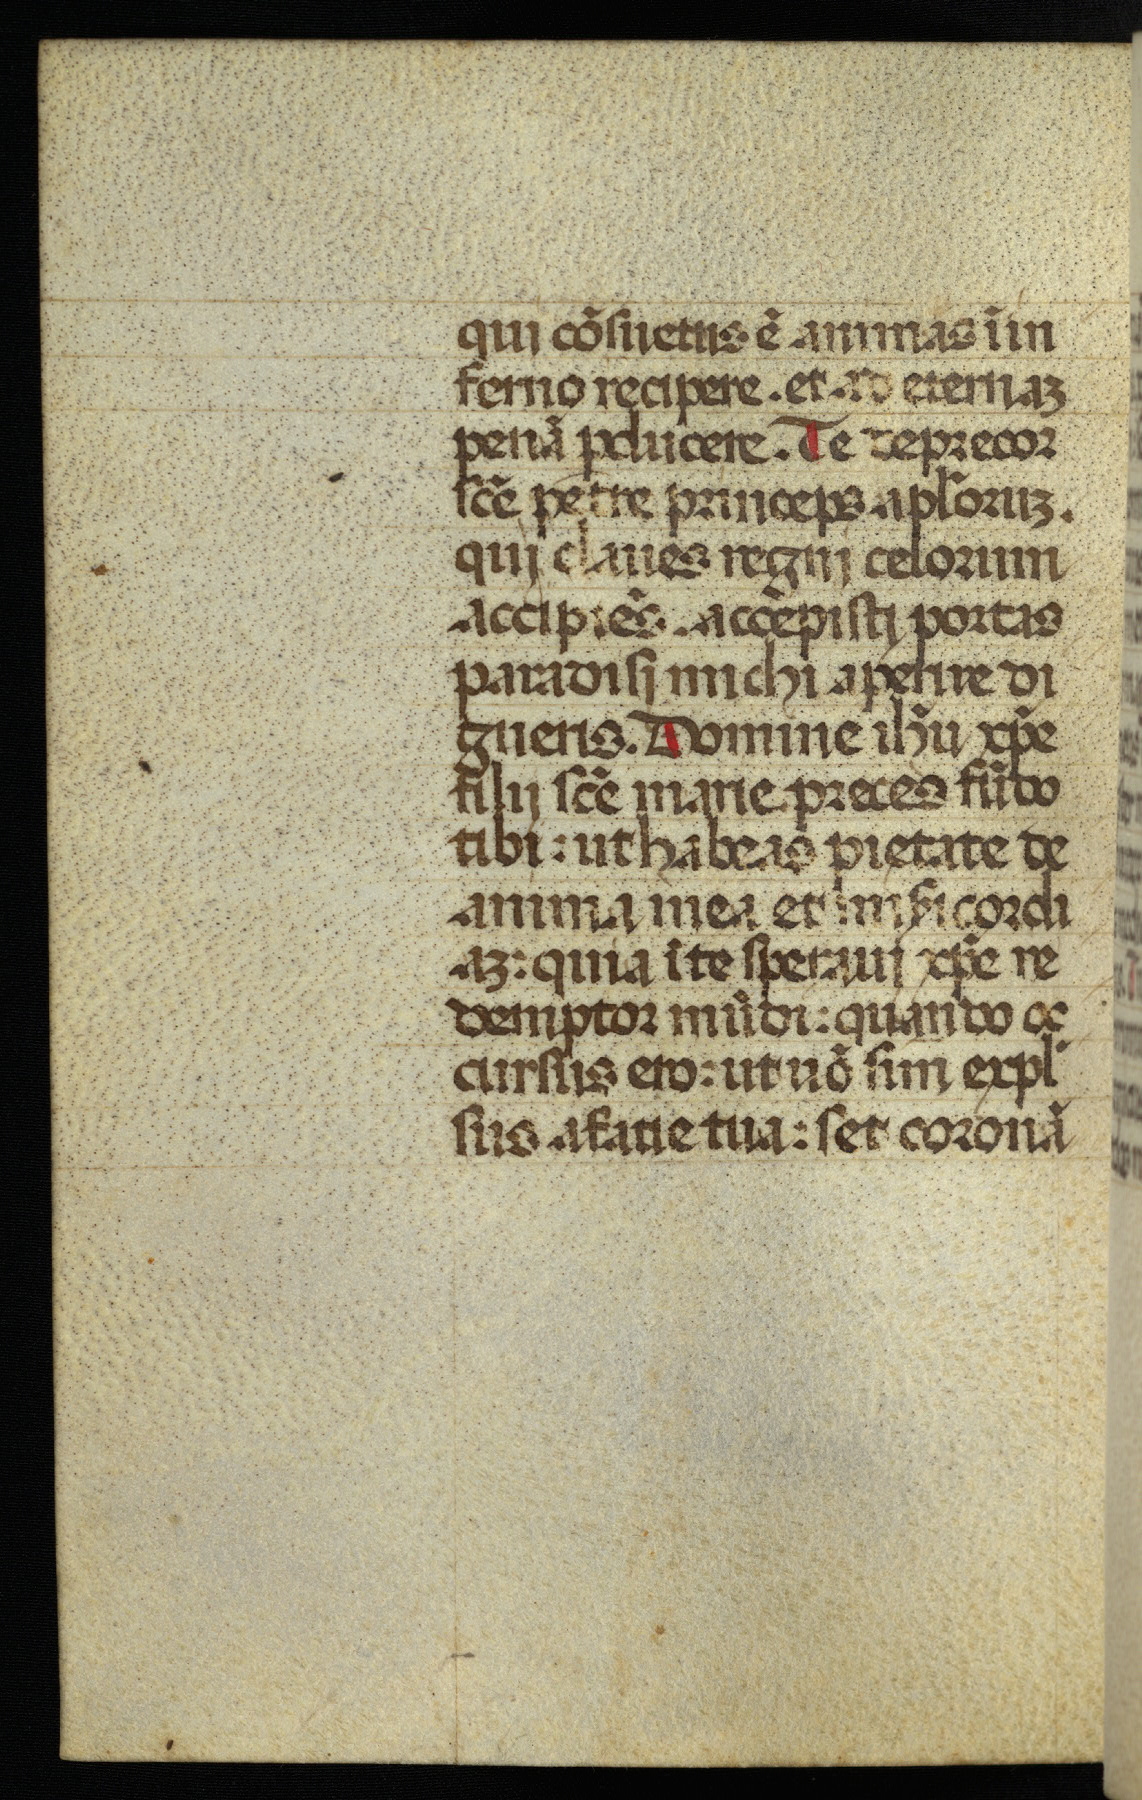 quj cõsuetus ẽ animas ĩ in
ferno recipere . et ad eternaz
penã pducere . Te deprecor
scẽ petre princeps apl'oruz .
quj claues regnj celorum
accipiẽs . accẽpistj portas
paradisj michi aperire di
gneris . Domine ihũ xp̃e
filij scẽ marie preces fũdo
tibi : ut habeas pietate de
anima mea et misicordi
az : quia ĩ te sperauj xp̃e re
demptor mũdi : quando oc
cursus ero : ut nõ sim expl'
sus a facie tua : set coronã